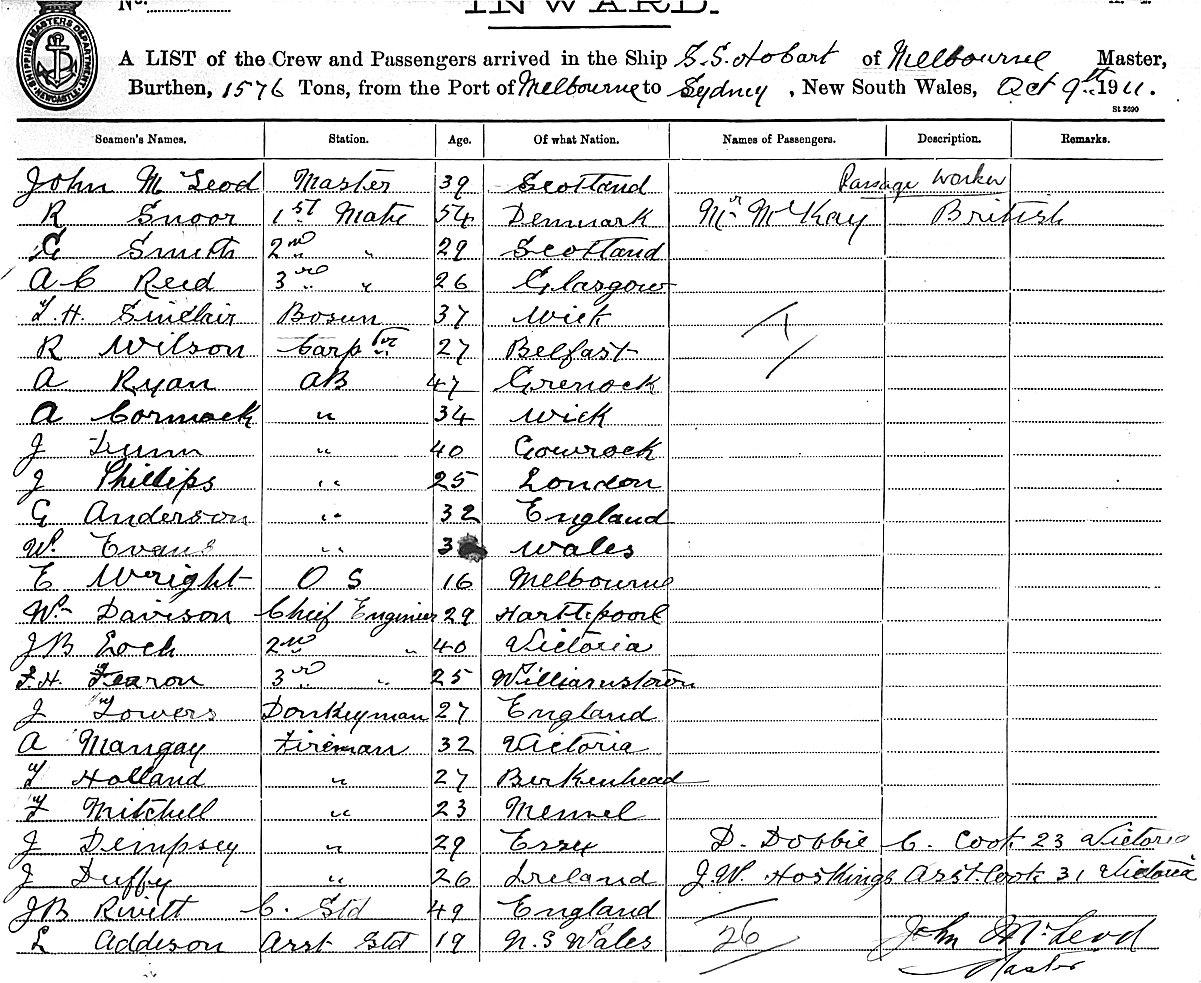 No.
INWARD.
SHIPPING MASTERS DEPARTMENT NEWCASTLE
A LIST of the Crew and Passengers arrived in the Ship S.S. Hobart of Melbourne Master,
Burthen, 1576 Tons, from the Port of Melbourne to Sydney, New South Wales, Oct 9th 1911.
St 3690
Seamen's Names. Station. Age. Of what Nation. Names of Passengers. Description. Remarks.
John McLeod Master 39 Scotland Passage Worker
R Snoor 1st Mate 54 Denmark Mr McKay British
G Smith 2nd " 29 Scotland
A C Reid 3rd " 26 Glasgow
T. H. Sinclair Bosun 37 Wick 1
R Wilson Carptr 27 Belfast
A Ryan AB 47 Grenock
A Cormack " 34 Wick
J Dunn " 40 Gowrock
J Phillips " 25 London
G Anderson " 32 England
W. Evans " 3 Wales
E Wright O S 16 Melbourne
Wm Davison Chief Engineer 29 Harttipool
J B Loch 2nd " 40 Victoria
F. H. Fearon 3rd " 25 Williamstown
J Towers Donkeyman 27 England
A Mangay Fireman 32 Victoria
T Holland " 27 Berkenhead
F Mitchell " 23
J Dempsey " 29 Essex D. Dobbie C. Cook 23 Victoria
J Duffy " 26 Ireland J. W. Hoskings Asst. Cook 31 Victoria
J B Rivitt C. Std 49 England
L Addison Asst Std 19 N. S Wales 26 John McLeod
Master